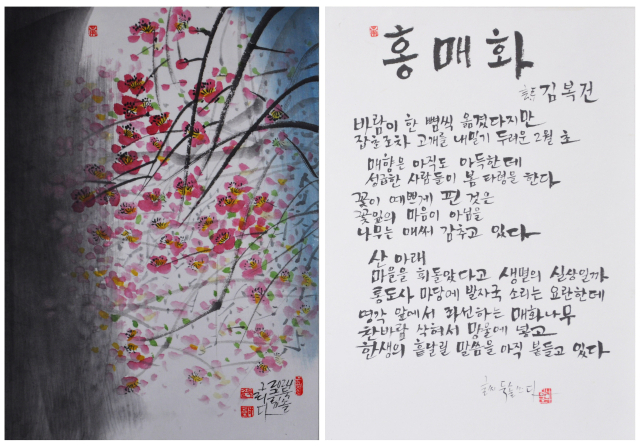 홍매화
김복건
바람이 한 뼘씩 옮겼다지만
잡초조차 고개를 내밀기 두려운 2월 초
매향은 아직도 아득한데
성급한 사람들이 봄 타령을 한다
꽃이 예쁘게 핀 것은
꽃잎의 마음이 아님을
나무는 애써 감추고 있다
산 아래
마을을 휘돌았다고 생멸의 실상일까
통도사 마당에 발자국 소리는 요란한데
영각 앞에서 좌선하는 매화나무
찬바람 삭혀서 망울에 넣고
한생의 흩날릴 말씀을 아직 붙들고 있다